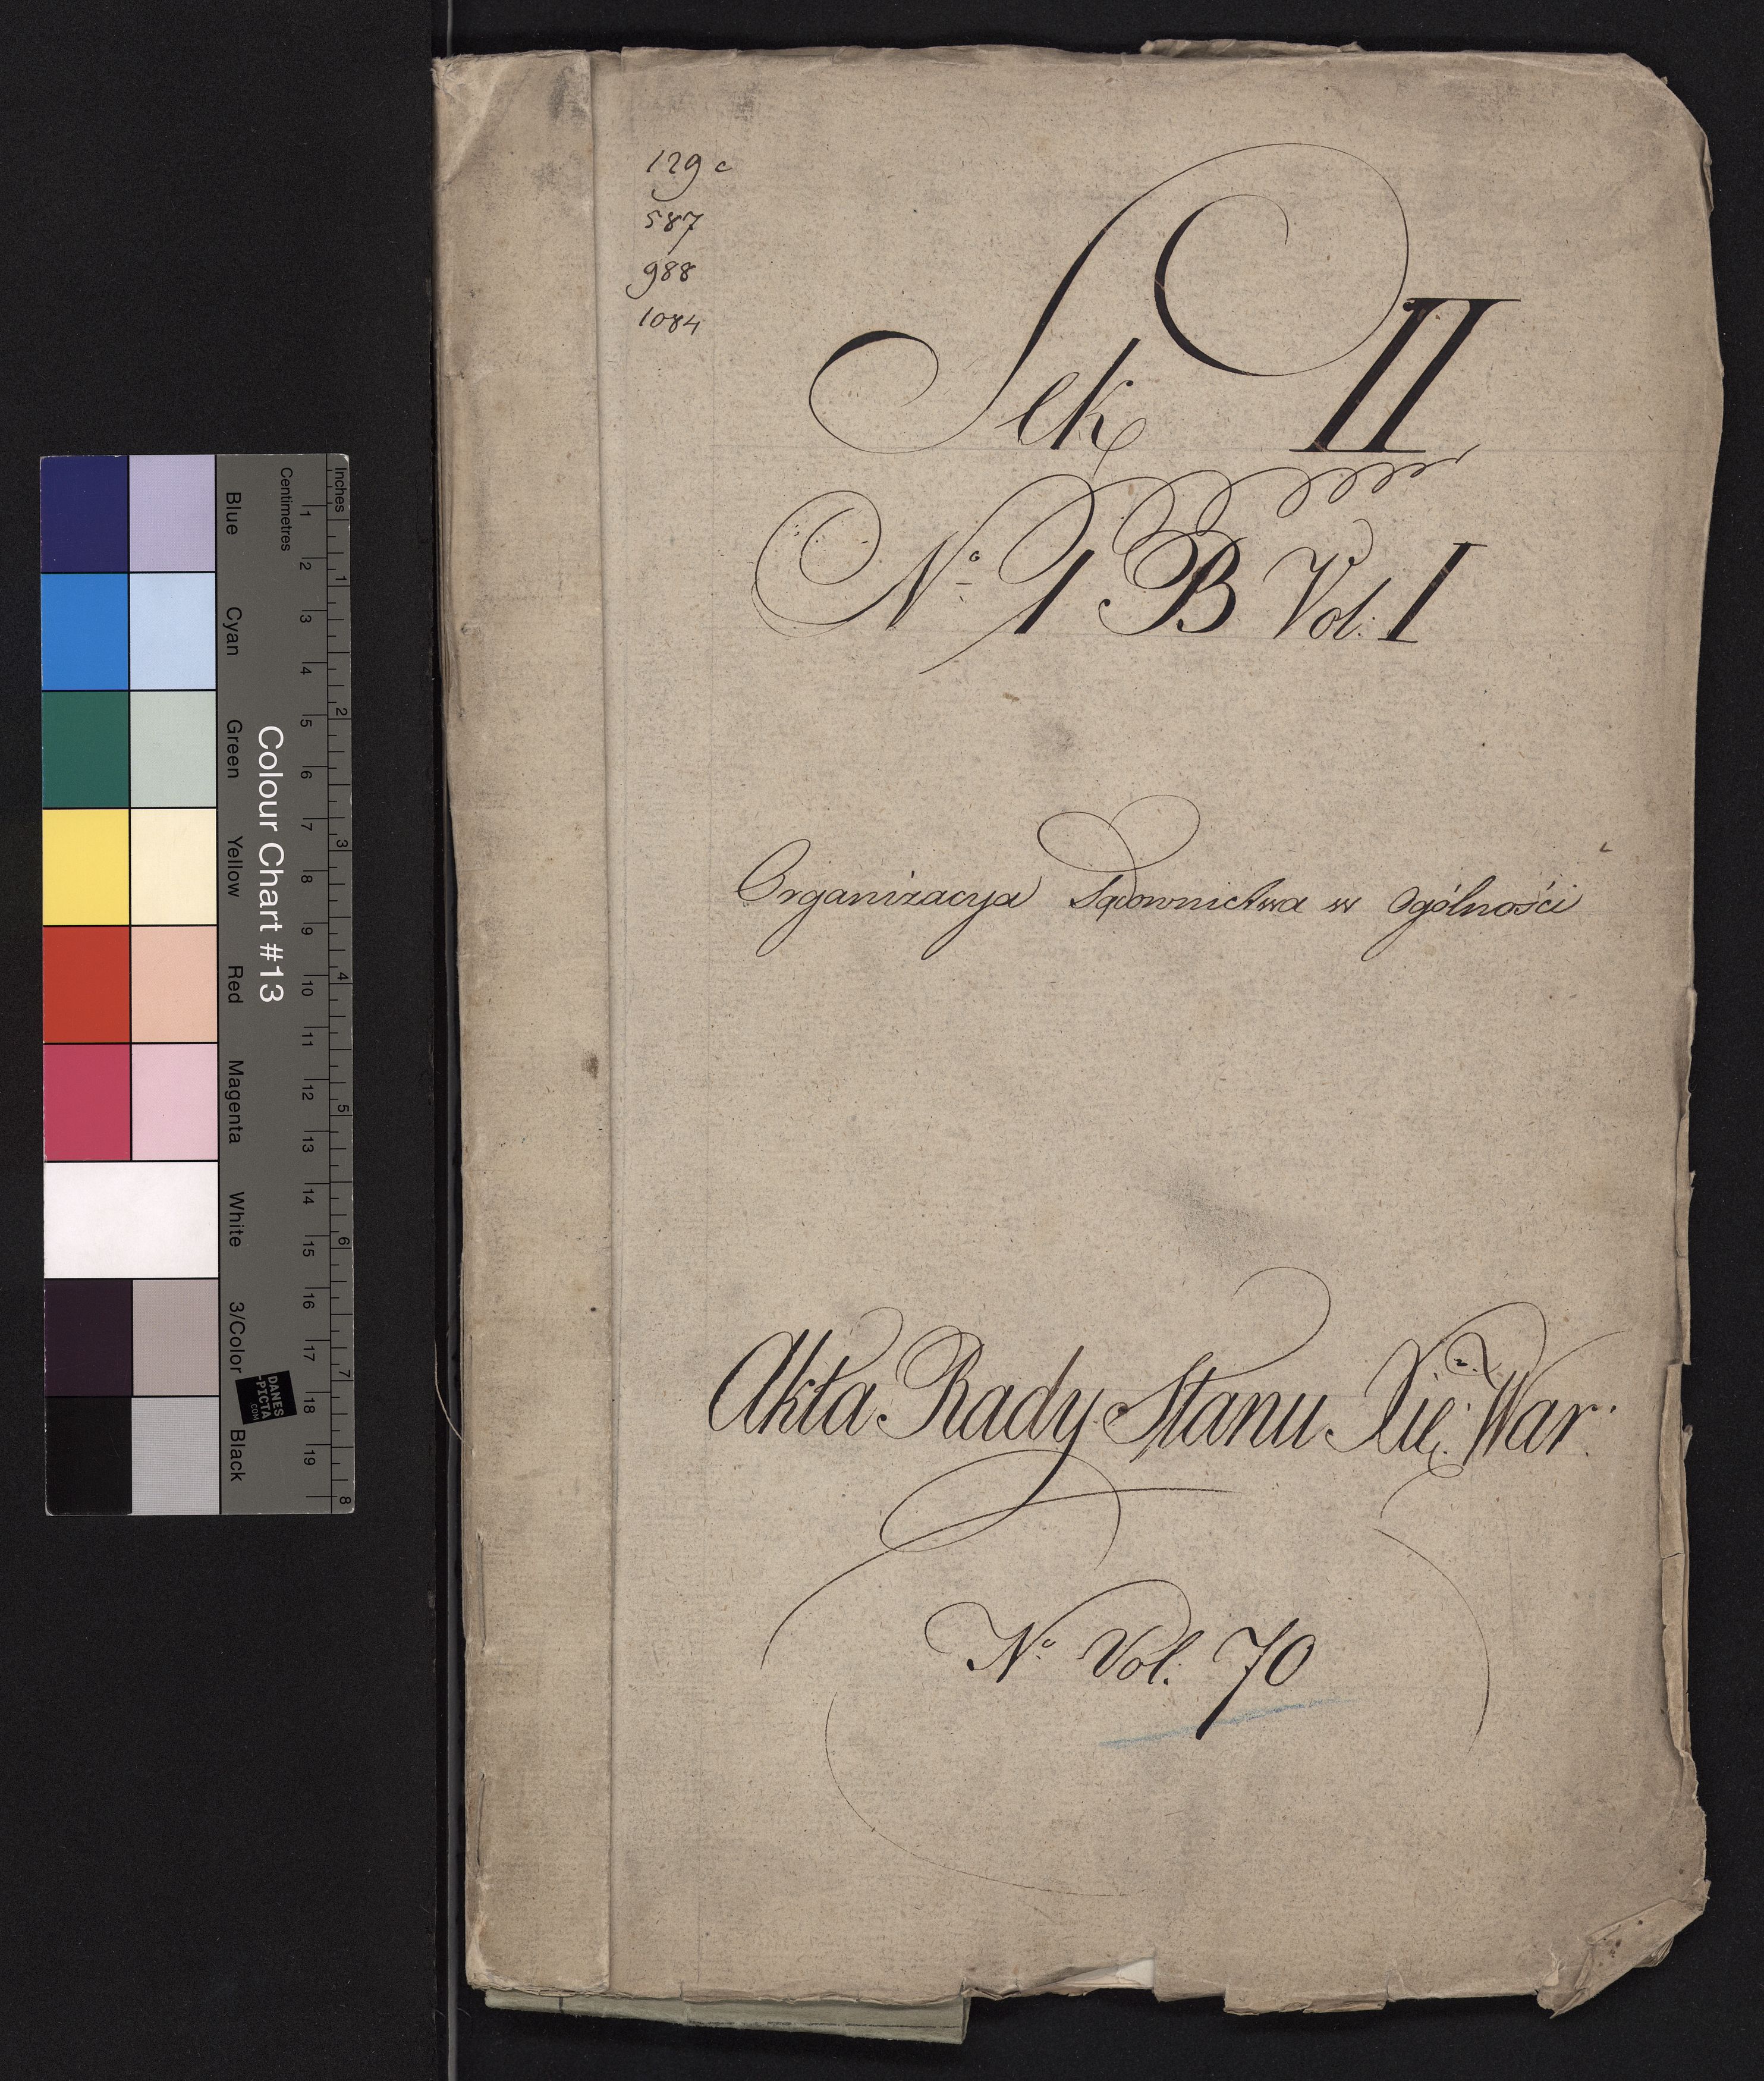 129 c
587
988
1084
Sek II
No 1 B Vol: I
Organizacya Sądownictwa w Ogólności
Akta Rady Stanu Xię: War:
No Vol. 70
Inches
Centimetres
1 2 3 4 5 6 7 8 9 10 11 12 13 14 15 16 17 18 19
1 2 3 4 5 6 7 8
Colour Chart #13
Blue
Cyan
Green
Yellow
Red
Magenta
White
3/Color
Black
DANES
-PICTA
.COM